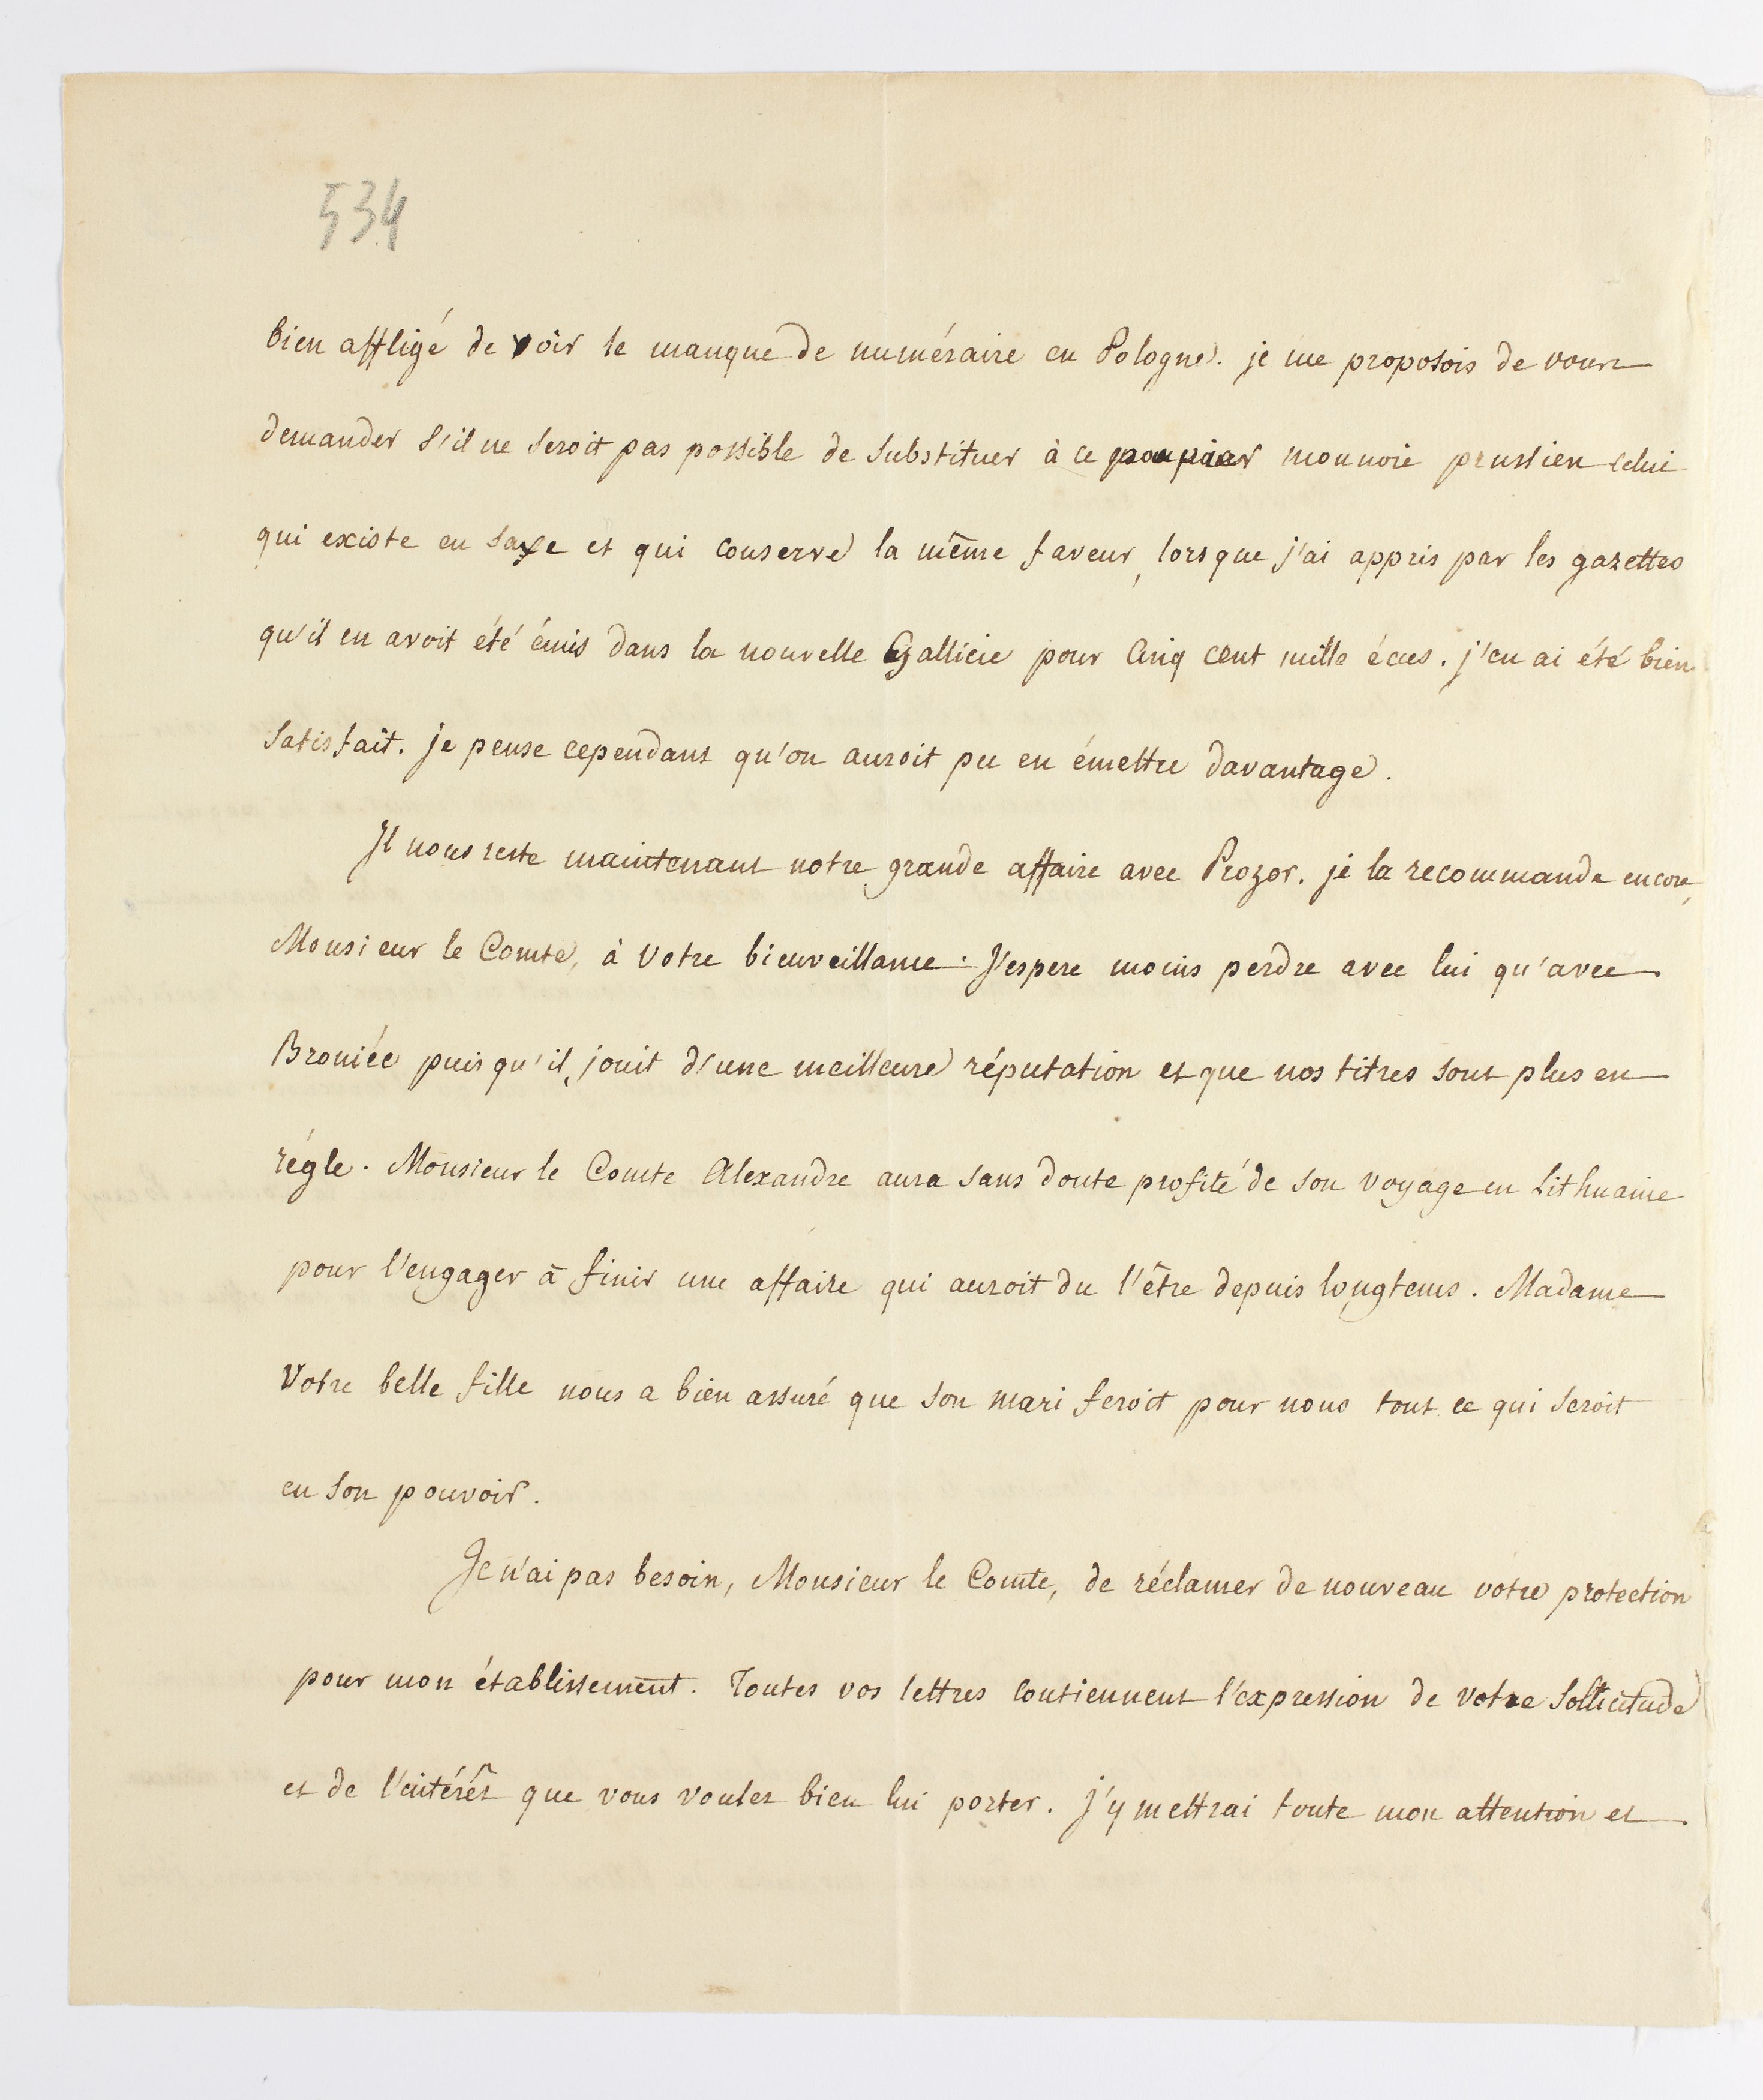 534
bien affligé de voir le manque de numéraire en Pologne. je me proposois de vous
demander s'il ne seroit pas possible de substituer à ce papier monnoie prussien celui
qui existe en Saxe et qui conserve la même faveur, lorsque j'ai appris par les gazettes
qu'il en avoit été émis dans la nouvelle Gallicie pour cinq cent mille écus. j'en ai été bien
satisfait. je pense cependant qu'on auroit pu en émettre davantage.
Il nous reste maintenant notre grande affaire avec Prozor. je la recommande encore,
Monsieur le Comte, à votre bienveillance. J'espere moins perdre avec lui qu'avec
Broniée puisqu'il jouit d'une meilleure réputation et que nos titres sont plus en
régle. Monsieur le Comte Alexandre aura sans doute profité de son voyage en Lithuanie
pour l'engager à finir une affaire qui auroit du l'être depuis longtems. Madame
Votre belle fille nous a bien assuré que son mari feroit pour nous tout ce qui seroit
en son pouvoir.
Je n'ai pas besoin, Monsieur le Comte, de réclamer de nouveau votre protection
pour mon établissement. Toutes vos lettres contiennent l'expression de votre sollicitude
et de l'intérêt que vous voulez bien lui porter. j'y mettrai toute mon attention et